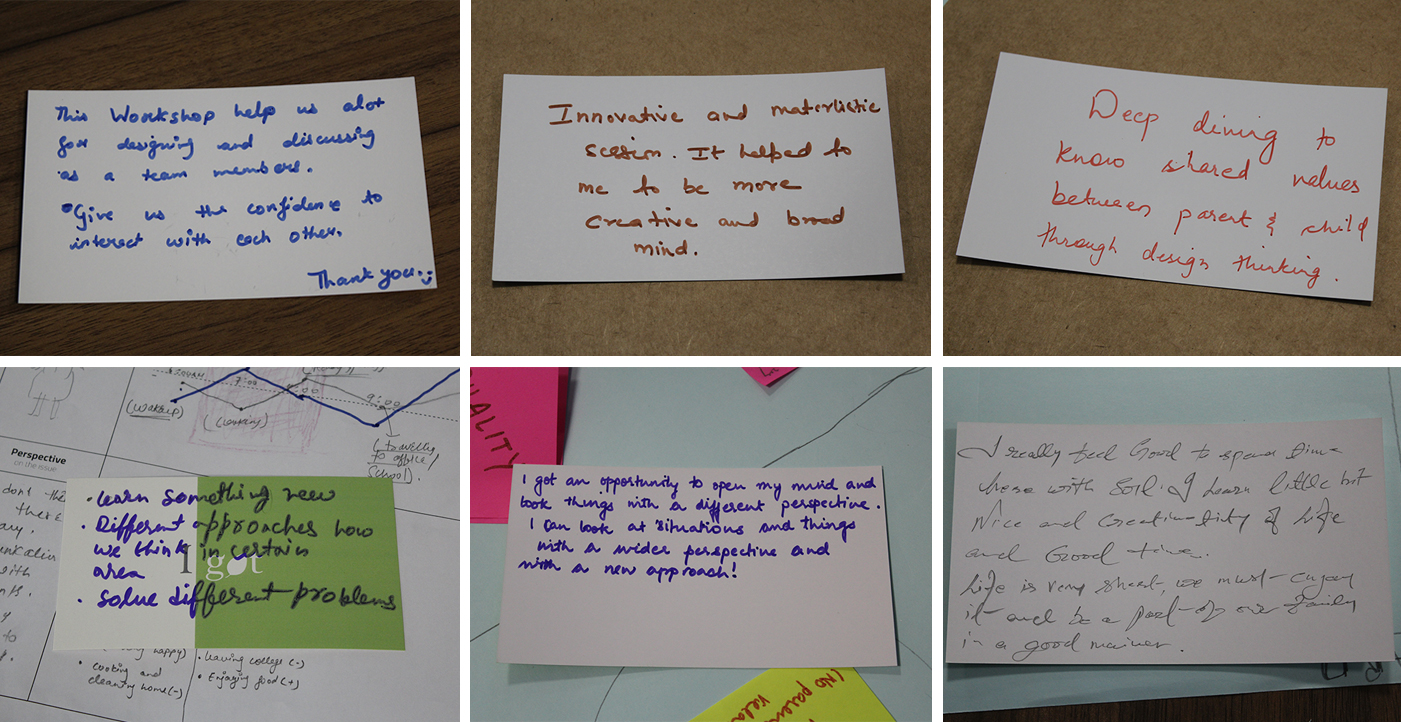 This Workshop help us alot
for designing and discussing
as a team members.
• Give us the confidence to
interact with each other.
Thank you :)
Innovative and materlistic
session. It helped to
me to be more
creative and broad
mind.
Deep dining to
know shared values
between parent & child
through design thinking.
7:00
(Wakeup)
(Cooking)
9:00
(travelling
to office/
School).
Perspective
on the issue
dont the
there
with
to
• learn something new
• Different approaches how
we think in certain
area
• Solve different problems
I got
happy)
• Cooking and
cleaning home(-)
• leaving college (-)
• Enjoying food (+)
ALITY
I got an opportunity to open my mind and
look things with a different perspective.
I can look at situations and things
with a wider perspective and
with a new approach!
(No paren
rela
I really feel Good to spend time
here with Soil. I learn little bit
Nice and of Life
and Good time.
Life is very short, we must enjoy
it and be a part of our family
in a good manner.